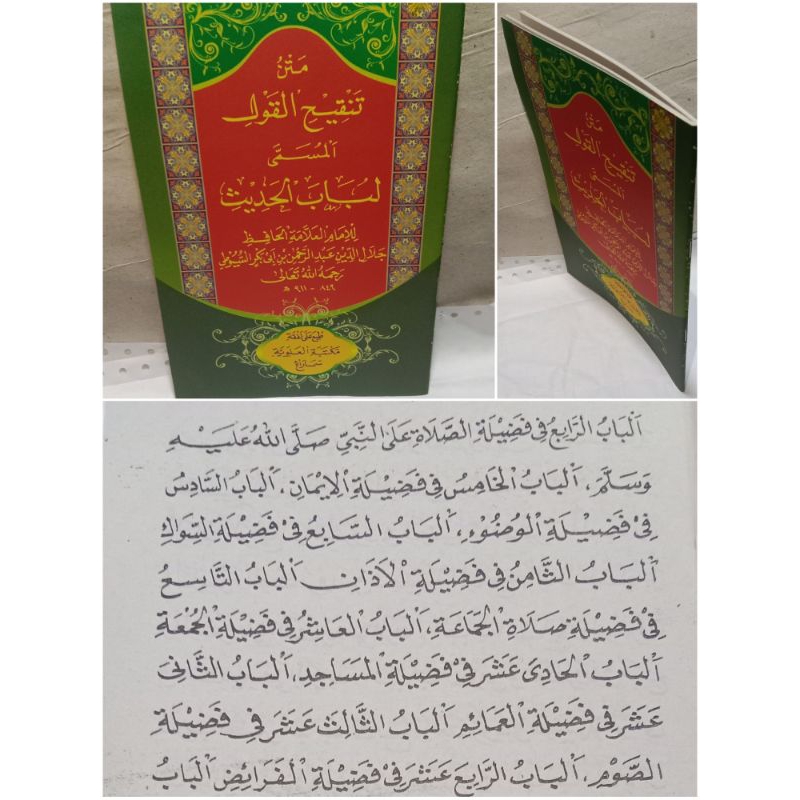 مَتْنُ
تَنْقِيحِ الْقَوْلِ
الْمُسَمَّى
لُبَابَ الْحَدِيْثِ
لِلْإِمَامِ الْعَلَّامَةِ الْحَافِظِ
جَلَالِ الدِّيْنِ عَبْدِ الرَّحْمٰنِ بْنِ أَبِي بَكْرٍ السُّيُوْطِي
رَحِمَهُ اللهُ تَعَالَى
٨٤٩ - ٩١١ هـ
طبع على نفقة
مكتبة العلوية
سماراڠ
مَتْنُ
تَنْقِيحِ الْقَوْلِ
الْمُسَمَّى
لُبَابَ الْحَدِيْثِ
اَلْبَابُ الرَّابِعُ فِى فَضِيْلَةِ الصَّلَاةِ عَلَى النَّبِيِّ صَلَّى اللهُ عَلَيْهِ
وَسَلَّمَ، اَلْبَابُ الْخَامِسُ فِى فَضِيْلَةِ الْإِيْمَانِ، اَلْبَابُ السَّادِسُ
فِىْ فَضِيْلَةِ الْوُضُوْءِ، اَلْبَابُ السَّابِعُ فِىْ فَضِيْلَةِ السِّوَاكِ
اَلْبَابُ الثَّامِنُ فِى فَضِيْلَةِ الْاَذَانِ اَلْبَابُ التَّاسِعُ
فِىْ فَضِيْلَةِ صَلَاةِ الْجَمَاعَةِ، اَلْبَابُ الْعَاشِرُ فِى فَضِيْلَةِ الْجُمُعَةِ
اَلْبَابُ الْحَادِىَ عَشَرَ فِىْ فَضِيْلَةِ الْمَسَاجِدِ، اَلْبَابُ الثَّانِىَ
عَشَرَ فِى فَضِيْلَةِ الْعَمَائِمِ اَلْبَابُ الثَّالِثَ عَشَرَ فِى فَضِيْلَةِ
الصَّوْمِ، اَلْبَابُ الرَّابِعَ عَشَرَ فِىْ فَضِيْلَةِ الْفَرَائِضِ اَلْبَابُ